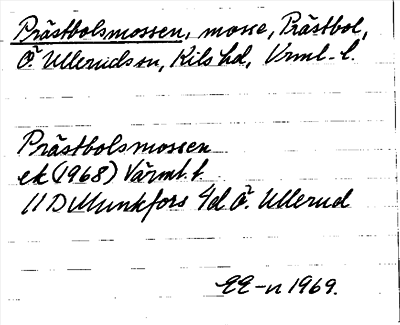 Prästbolsmossen, mosse, Prästbol,
Ö. Ulleruds sn, Kils hd, Vrml. l.
Prästbolsmossen
ek (1968) Värml. l.
11D Munkfors 4d Ö. Ullerud
EE-n 1969.